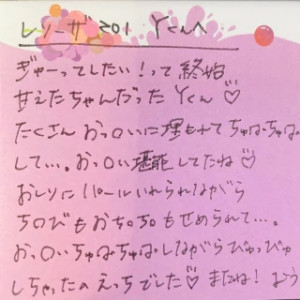 レジーナ201 Yくんへ
ぎゅーってしたい！って終始
甘えたちゃんだったYくん♡
たくさんおっ〇いに埋もれてちゅぱちゅぱ
して…。おっ〇い堪能してたね♡
おしりにパールいれられながら
ち〇びもおち〇ち〇もせめられて…。
おっ〇いちゅぱちゅぱしながらぴゅっぴゅ
しちゃったのえっちでした♡ またね！